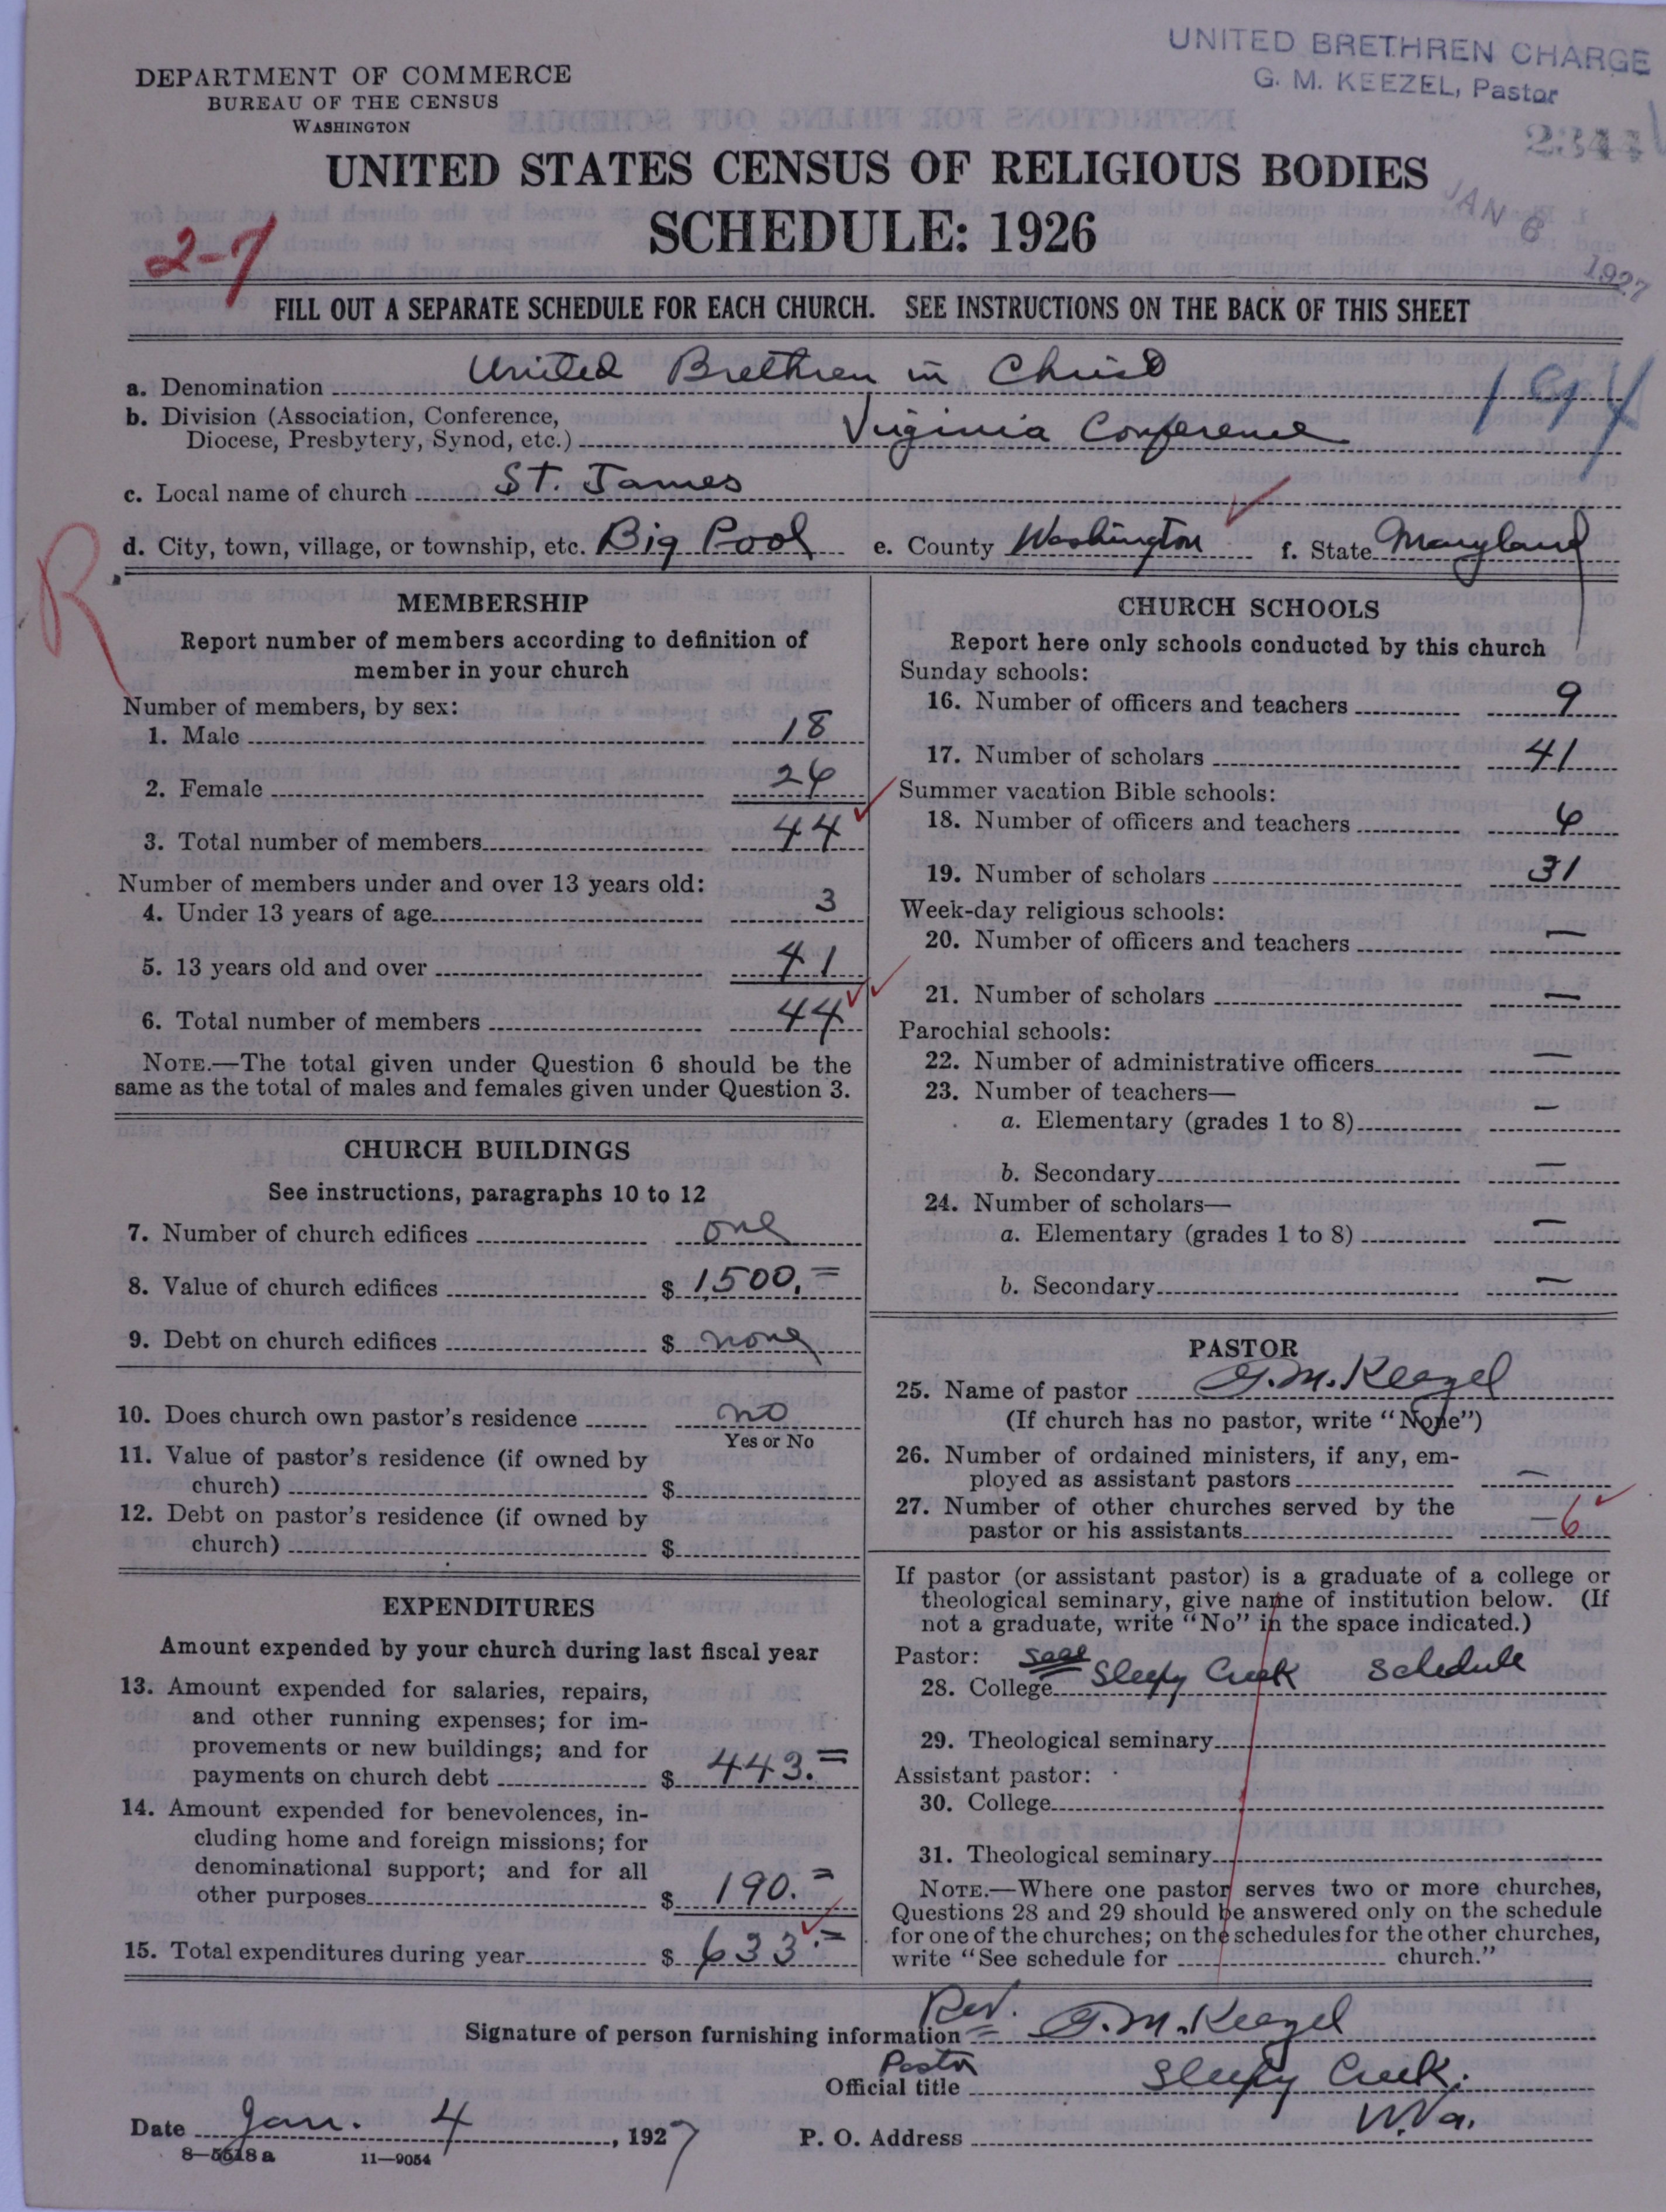 UNITED BRETHREN CHARGE
G. M. KEEZEL, Pastor
DEPARTMENT OF COMMERCE
BUREAU OF THE CENSUS
WASHINGTON
UNITED STATES CENSUS OF RELIGIOUS BODIES
SCHEDULE: 1926
JAN 6 1927
2-7
FILL OUT A SEPARATE SCHEDULE FOR EACH CHURCH. SEE INSTRUCTIONS ON THE BACK OF THIS SHEET
a. Denomination United Brethren in Christ
194
b. Division (Association, Conference,
Diocese, Presbytery, Synod, etc.) Virginia Conference
c. Local name of church St. James
d. City, town, village, or township, etc. Big Pool e. County Washington f. State Maryland
R
MEMBERSHIP
Report number of members according to definition of
member in your church
Number of members, by sex:
1. Male 18
2. Female 26
3. Total number of members 44
Number of members under and over 13 years old:
4. Under 13 years of age 3
5. 13 years old and over 41
6. Total number of members 44
NOTE.—The total given under Question 6 should be the
same as the total of males and females given under Question 3.
CHURCH BUILDINGS
See instructions, paragraphs 10 to 12
7. Number of church edifices one
8. Value of church edifices $ 1500.=
9. Debt on church edifices $ none
10. Does church own pastor's residence no
Yes or No
11. Value of pastor's residence (if owned by
church) $
12. Debt on pastor's residence (if owned by
church) $
EXPENDITURES
Amount expended by your church during last fiscal year
13. Amount expended for salaries, repairs,
and other running expenses; for im-
provements or new buildings; and for
payments on church debt $ 443.=
14. Amount expended for benevolences, in-
cluding home and foreign missions; for
denominational support; and for all
other purposes $ 190.=
15. Total expenditures during year $ 633.=
CHURCH SCHOOLS
Report here only schools conducted by this church
Sunday schools:
16. Number of officers and teachers 9
17. Number of scholars 41
Summer vacation Bible schools:
18. Number of officers and teachers 6
19. Number of scholars 31
Week-day religious schools:
20. Number of officers and teachers —
21. Number of scholars —
Parochial schools:
22. Number of administrative officers —
23. Number of teachers—
a. Elementary (grades 1 to 8) —
b. Secondary —
24. Number of scholars—
a. Elementary (grades 1 to 8) —
b. Secondary —
PASTOR
25. Name of pastor G. M. Keezel
(If church has no pastor, write "None")
26. Number of ordained ministers, if any, em-
ployed as assistant pastors —
27. Number of other churches served by the
pastor or his assistants — 6
If pastor (or assistant pastor) is a graduate of a college or
theological seminary, give name of institution below. (If
not a graduate, write "No" in the space indicated.)
Pastor:
28. College Sleepy Creek Schedule
29. Theological seminary
Assistant pastor:
30. College
31. Theological seminary
NOTE.—Where one pastor serves two or more churches,
Questions 28 and 29 should be answered only on the schedule
for one of the churches; on the schedules for the other churches,
write "See schedule for church."
Signature of person furnishing information Rev. G. M. Keezel
Official title Pastor Sleepy Creek.
W.Va.
Date Jan. 4, 1927 P. O. Address
8—5518 a 11—9054